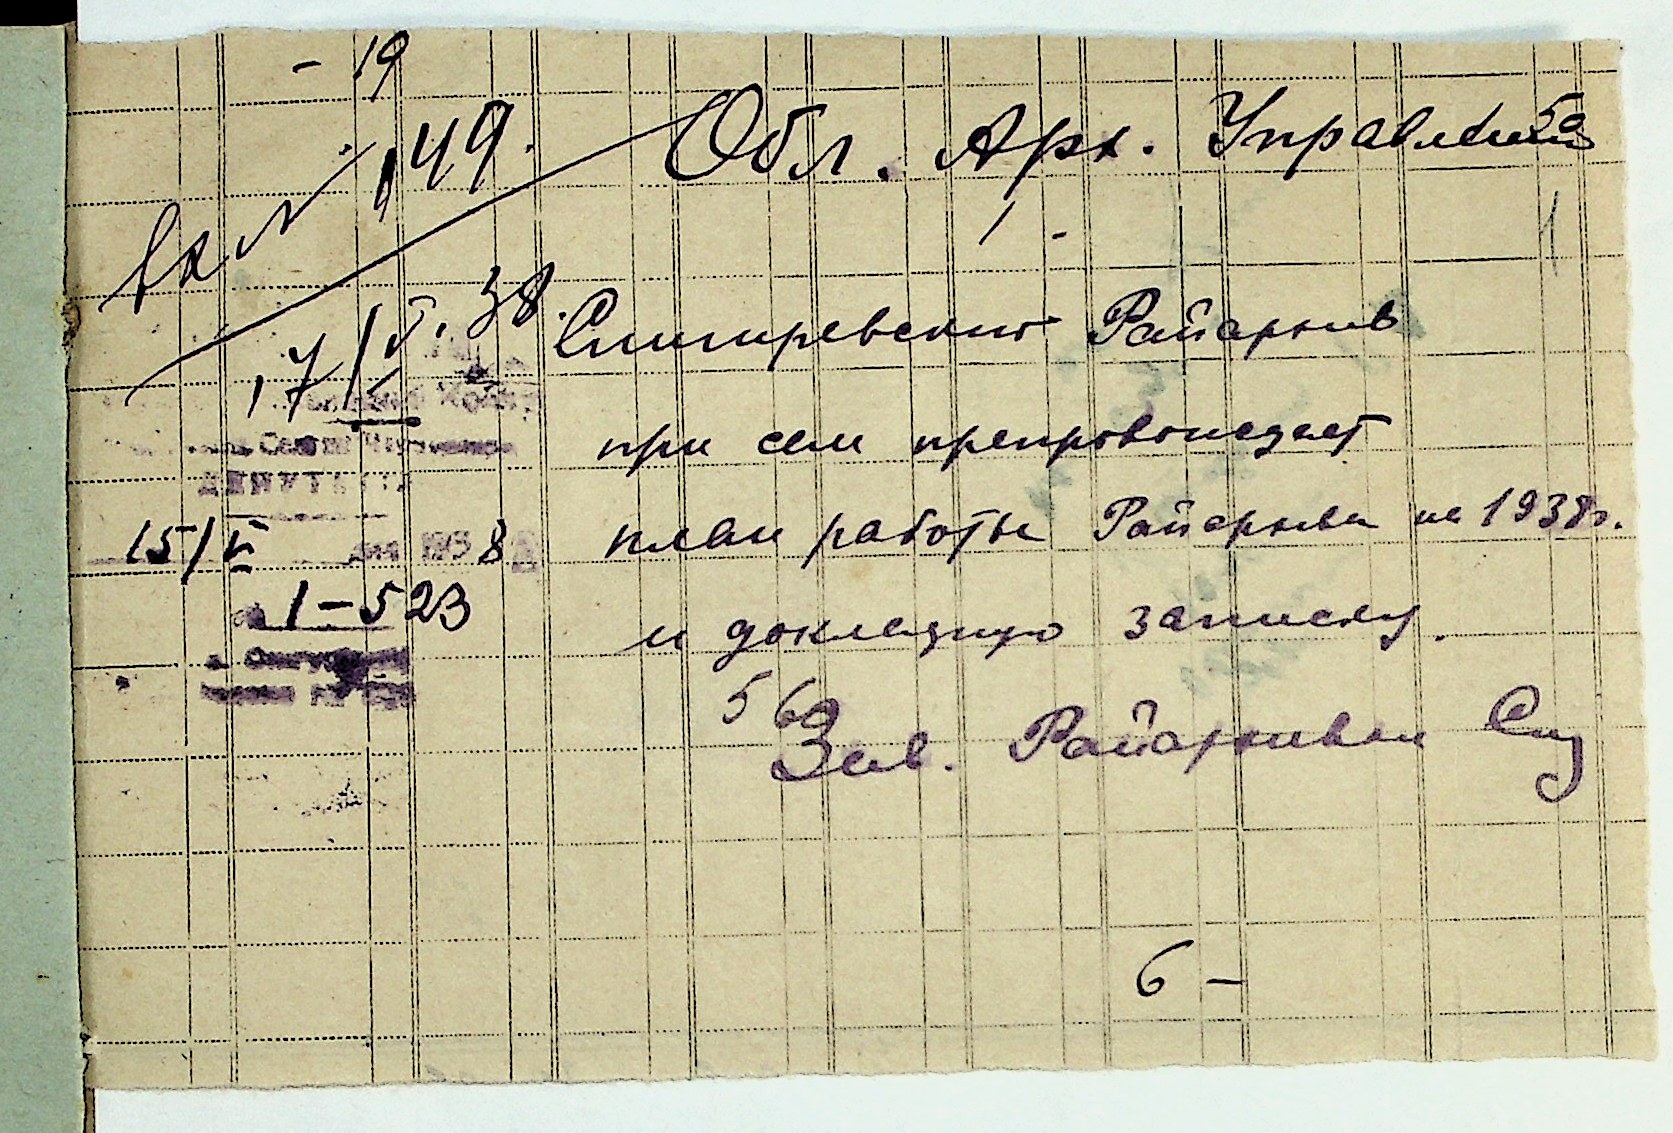 - 19
50
Вх № 149.
Обл. Арх. Управление
17/V. 38.
1
Райархив
при сем препровождает
ДЕПУТАТОВ
15/V 1938
план работы Райархива на 1938 г.
№ 1-523
и докладную записку.
5
Зав. Райархивом
6 -